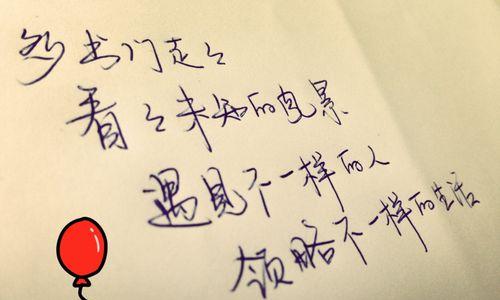 多出门走々
看々未知的光景
遇见不一样的人
领略不一样的生活